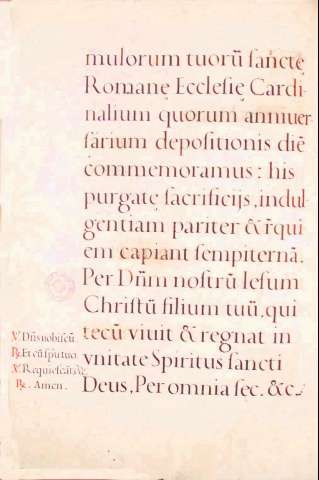 mulorum tuorū ſanctę
Romanę Eccleſię Cardi-
nalium quorum anniuer-
ſarium depoſitionis diē
commemoramus: his
purgatę ſacrificijs, indul-
gentiam pariter & rēqui
em capiant ſempiternā.
Per Dn̄m noſtrū Ieſum
Chriſtū filium tuū, qui
tecū viuit & regnat in
vnitate Spiritus ſancti
Deus, Per omnia ſec. &c.
℣. Dn̄s nobiſcū.
℟. Et cū ſpū tuo
℣. Requieſcāt &c.
℟. Amen.